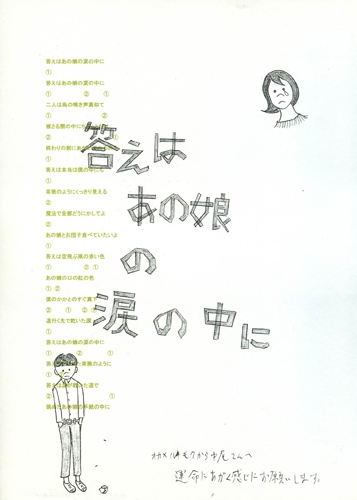 答えはあの娘の涙の中に
①
答えはあの娘の涙の中に
① ② ①
二人は鳥の鳴き声真似て
① ②
①
終わりの
①
答えは本当は僕の中にも
①
のようにくっきり見える
②
魔法で全部どうにかしてよ
②
あの娘とお団子食べていたいよ
①
答えは空飛ぶ豚の赤い色
① ② ①
あの娘の口の紅の色
① ②
僕のかかとのすぐ真下
② ① ② ①
道行く先で乾いた涙
①
答えはあの娘の涙の中に
① ② ①
のように
①
答えは
が乾いた道で
② ①
の中に
答えは
あの娘
の
涙の中に
から中尾さんへ
運命にあがく感じにお願いします。